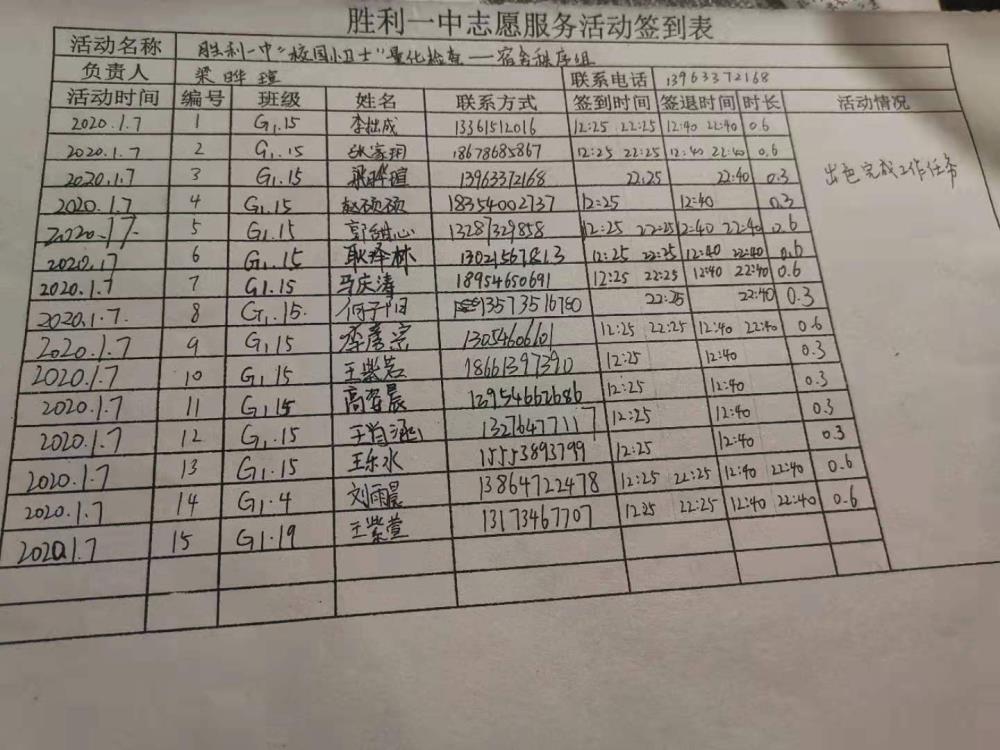 胜利一中志愿服务活动签到表
活动名称 胜利一中"校园小卫士"量化检查——宿舍秩序组
负责人 梁晔瑄 联系电话 13963372168
活动时间 编号 班级 姓名 联系方式 签到时间 签退时间 时长 活动情况
2020.1.7 1 G1.15 李拙成 13361512016 12:25 22:25 12:40 22:40 0.6
2020.1.7 2 G1.15 张家玥 18678685867 12:25 22:25 12:40 22:40 0.6
2020.1.7 3 G1.15 梁晔瑄 13963372168 22:25 22:40 0.3 出色完成工作任务
2020.1.7 4 G1.15 赵硕硕 18354002737 12:25 12:40 0.3
2020.1.7 5 G1.15 郭甜心 13287329858 12:25 22:25 12:40 22:40 0.6
2020.1.7 6 G1.15 耿泽林 13021567813 12:25 22:25 12:40 22:40 0.6
2020.1.7 7 G1.15 马庆涛 18954650691 12:25 22:25 12:40 22:40 0.6
2020.1.7. 8 G1.15. 何子阳 13573516780 22:25 22:40 0.3
2020.1.7 9 G1.15 李彦宗 13054606601 12:25 22:25 12:40 22:40 0.6
2020.1.7 10 G1.15 王紫茗 18661397390 12:25 12:40 0.3
2020.1.7 11 G1.15 高姿晨 12954662686 12:25 12:40 0.3
2020.1.7 12 G1.15 王肖涵 13276477117 12:25 12:40 0.3
2020.1.7 13 G1.15 王乐水 15553893799 12:25 12:40 0.3
2020.1.7 14 G1.4 刘雨晨 13864722478 12:25 22:25 12:40 22:40 0.6
2020.1.7 15 G1.19 王紫萱 13173467707 12:25 22:25 12:40 22:40 0.6